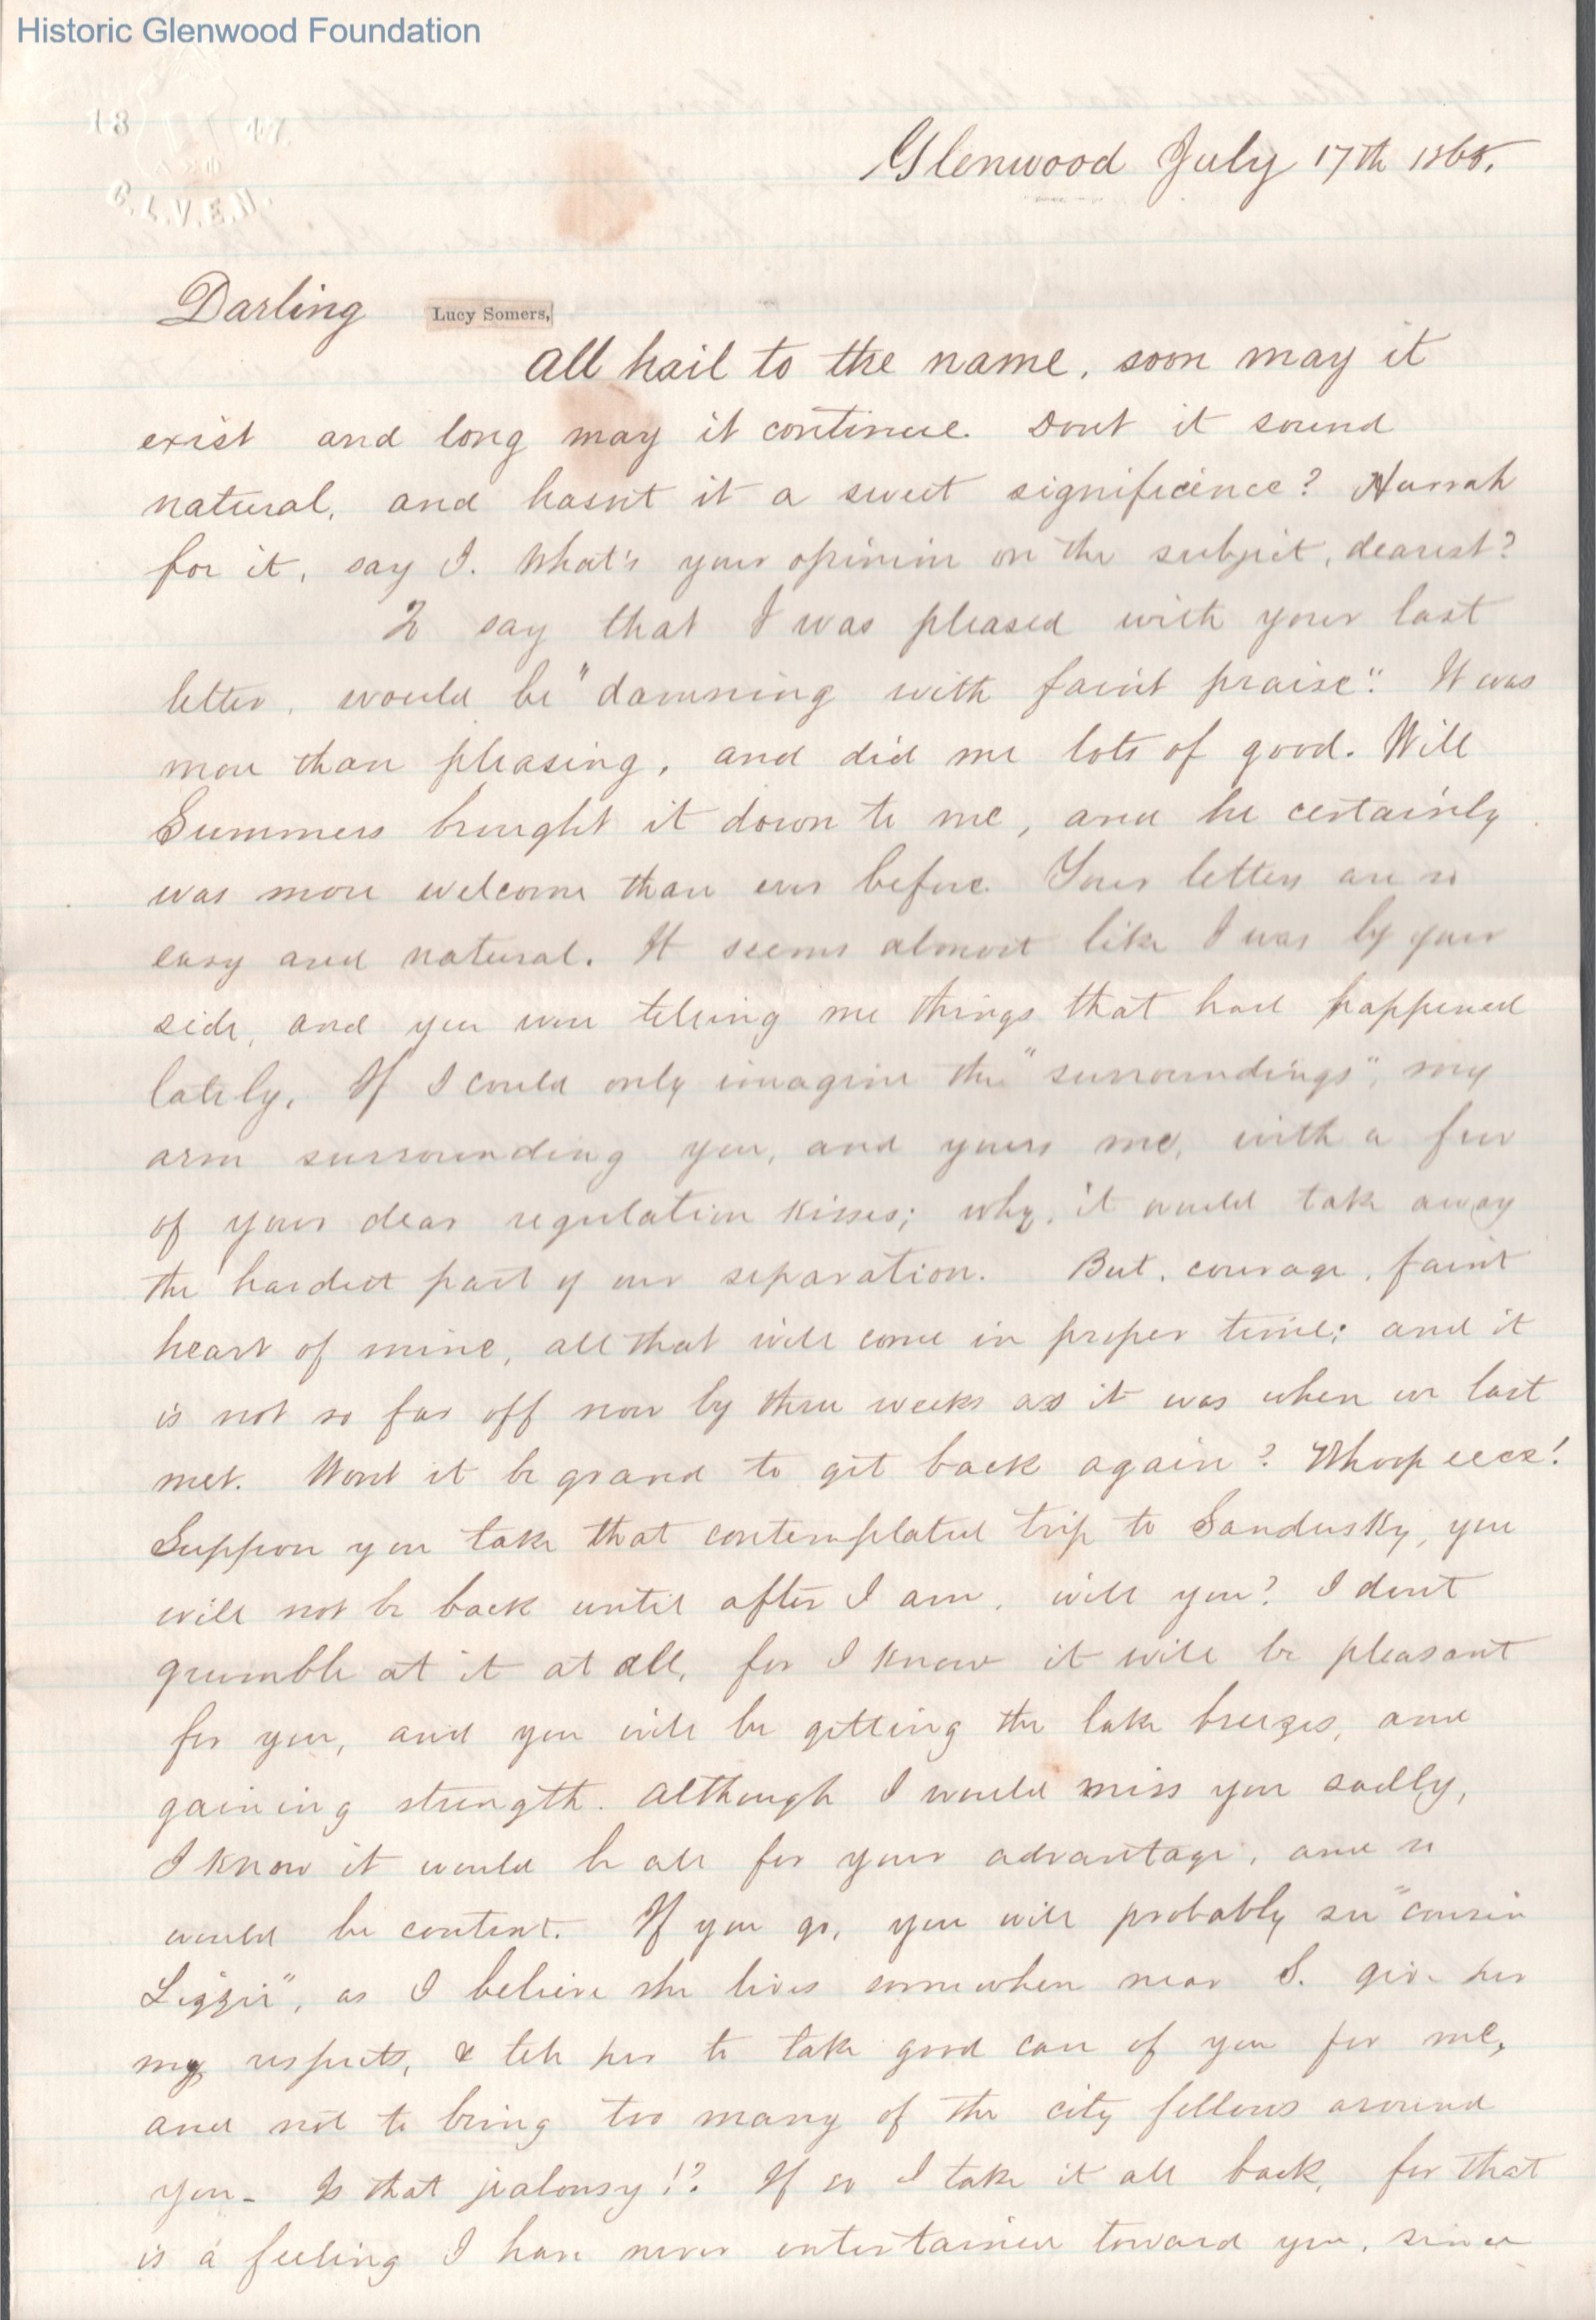 Historic Glenwood Foundation
18 47.
Glenwood July 17th 1868.
Darling Lucy Somers,
All hail to the name, soon may it
exist and long may it continue. Dont it sound
natural, and hasn't it a sweet significance? Hurrah
for it, say I. What's your opinion on the subject, dearest?
To say that I was pleased with your last
letter, would be "damning with faint praise". It was
more than pleasing, and did me lots of good. Will
Summers brought it down to me, and he certainly
was more welcome than ever before. Your letters are so
easy and natural. It seems almost like I was by your
side, and you were telling me things that had happened
lately. If I could only imagine the "surroundings", my
arm surrounding you, and yours me, with a few
of your dear regulation kisses; why, it would take away
the hardest part of our separation. But, courage, faint
heart of mine, all that will come in proper time; and it
is not so far off now by three weeks as it was when we last
met. Wont it be grand to get back again? Whoop eeee!
Suppose you take that contemplated trip to Sandusky, you
will not be back until after I am, will you? I dont
grumble at it at all, for I know it will be pleasant
for you, and you will be getting the lake breezes, and
gaining strength. Although I would miss you sadly,
I know it would be all for your advantage, and so
would be content. If you go, you will probably see "cousin
Lizzie", as I believe she lives somewhere near S. give her
my respects, & tell her to take good care of you for me,
and not to bring too many of the city fellows around
you - Is that jealousy!? If so I take it all back, for that
is a feeling I have never entertained toward you, since